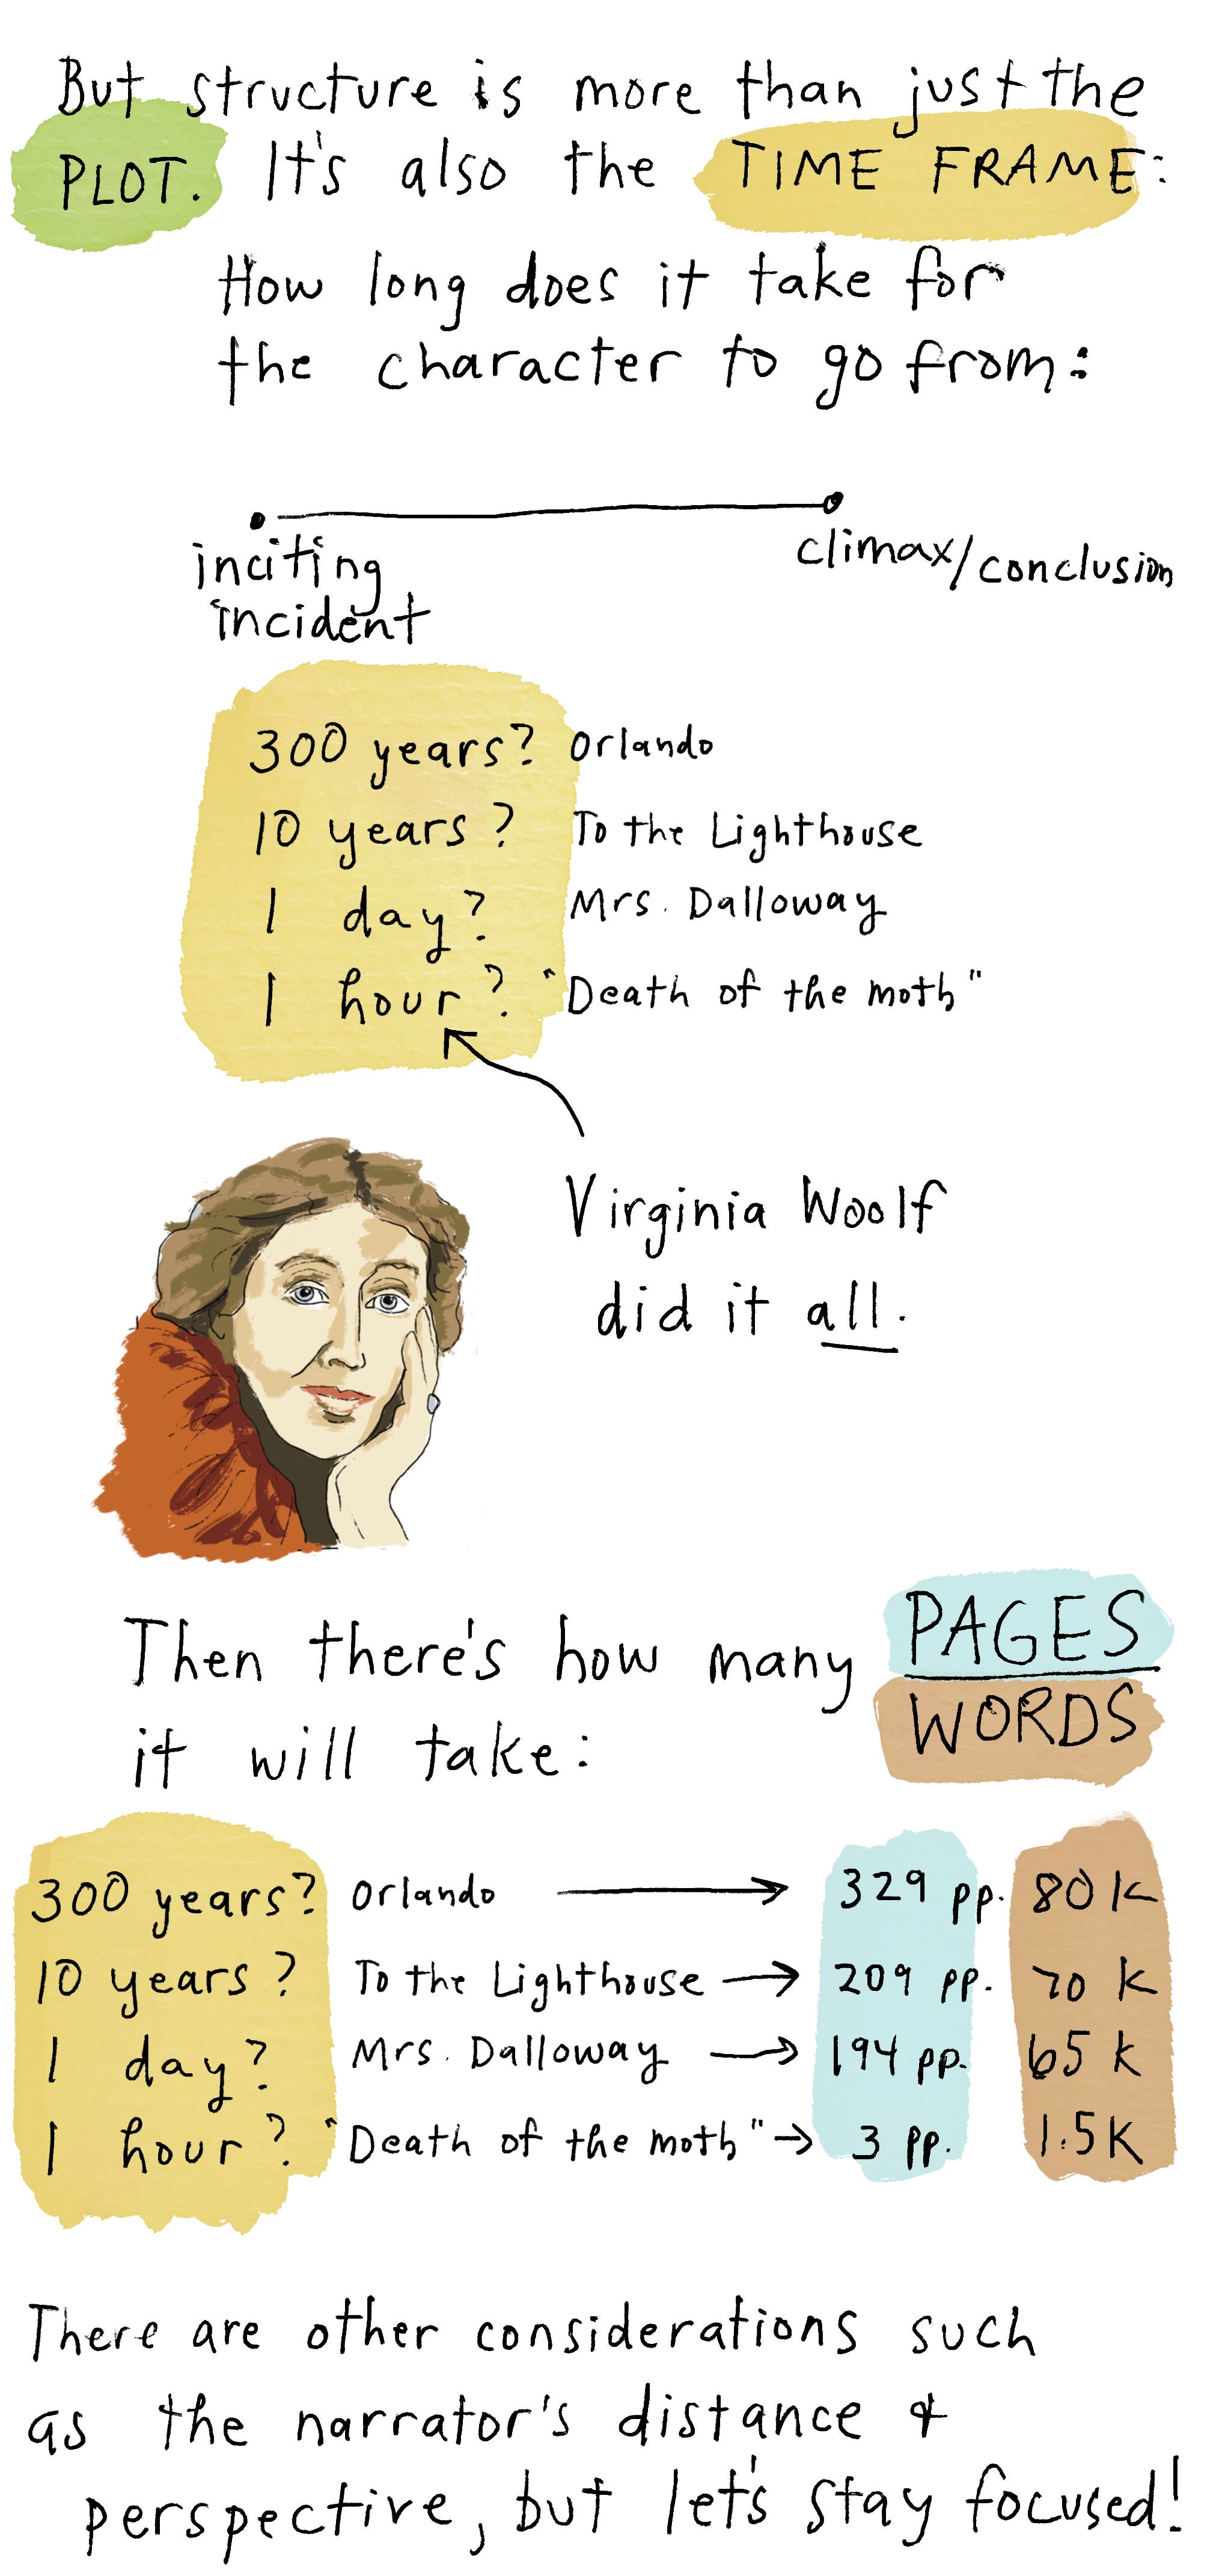 But structure is more than just the
PLOT. It's also the TIME FRAME:
How long does it take for
the character to go from:
inciting
incident
climax/conclusion
300 years? Orlando
10 years? To the Lighthouse
1 day? Mrs. Dalloway
1 hour? "Death of the moth"
Virginia Woolf
did it all.
Then there's how many PAGES
WORDS
it will take:
300 years? Orlando 329 pp. 80K
10 years? To the Lighthouse 209 pp. 70 K
1 day? Mrs. Dalloway 194 pp. 65 K
1 hour? "Death of the moth" 3 pp. 1.5K
There are other considerations such
as the narrator's distance &
perspective, but let's stay focused!